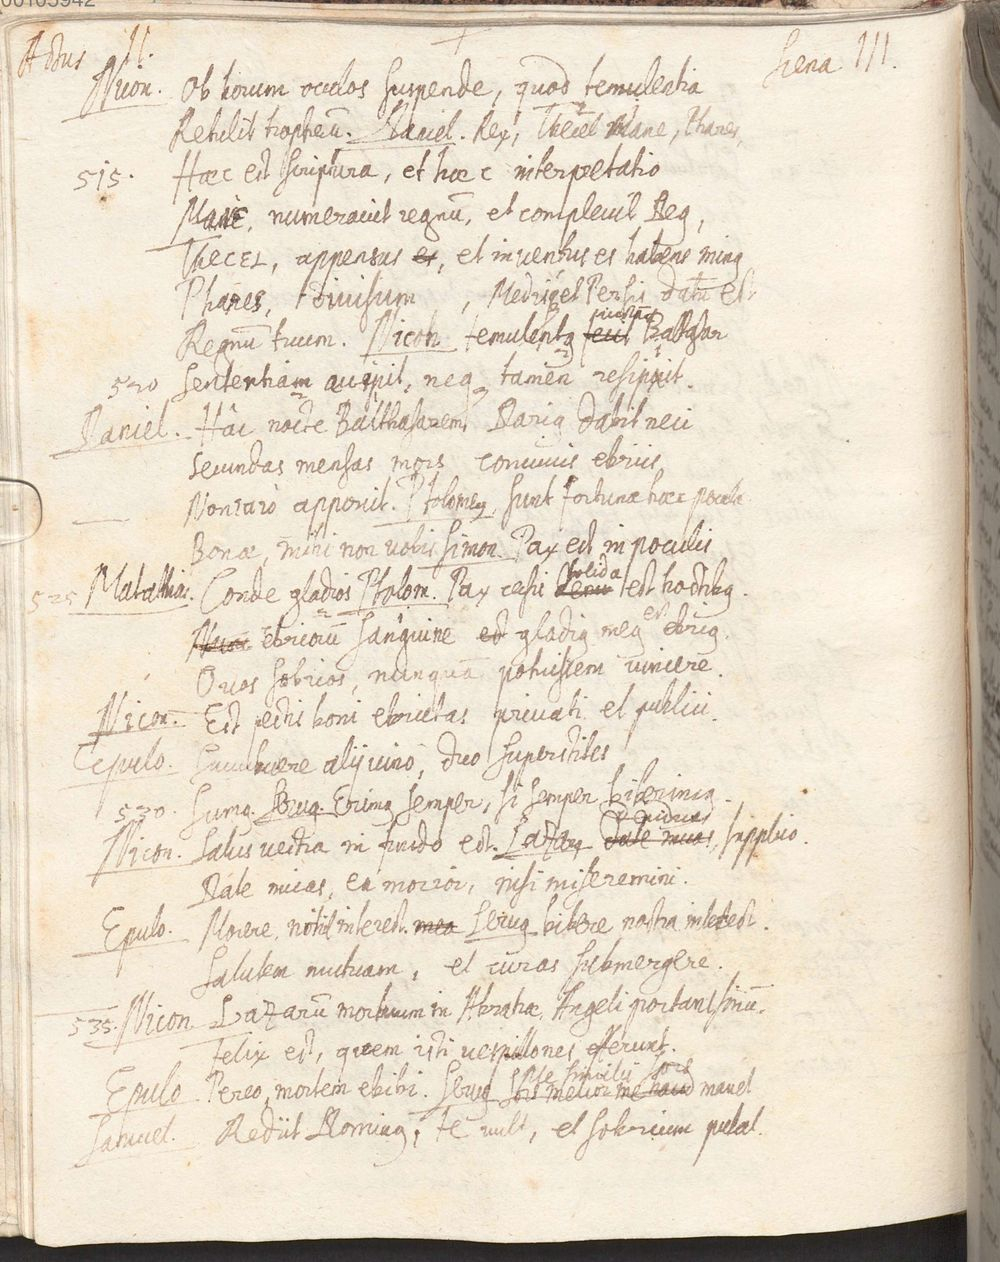 00105942
Actus II. Scena III.
Nicon. Ob horum oculos suspende, quod temulentia
Retulit tropheū. Daniel. Rex, Thecel Mane, Phares,
515. Haec est scriptura, et haec interpretatio
Mane, numeravit regnū, et complevit Deg,
Thecel, appensus es, et inventus es habens ming
Phares, divisum , Medis et Persis datū est
Regnū tuum. Nicon temulentg Baltasar
520 Sententiam accipit, neq tamen resipuit.
Daniel. Hâc nocte Balthasarem Darig dabit neci
Secundas mensas mors convivis ebriis
Non raro apponit. Ptolomeg. Sunt fortunae haec pocula
Bonae, mihi non vobis Simon. Pax est in poculis
525 Matathia. Conde gladios Ptolom. Pax solida est hostibg.
Nunc ebriorū sanguine est gladig meg est ebrig.
O vos sobrios, nunquā potuissem vincere.
Nicon. Est pestis boni ebrietas privati et publici.
Epulo. Succubuere alij vino, duo superstites
530. Sumg. Servg. Erimg semper, si semper biberimg.
Nicon. Salus vestra in fundo est. Lazarg Date micas, supplico.
Date micas, en morior, nisi miseremini.
Epulo. Morere, nihil interest. mea Servg bibere nostra interest.
Salutem mutuam, et curas submergere.
535. Nicon Lazarū mortuum in Abrahae Angeli portant sinū.
Felix est, quem isti vespillones efferunt.
Epulo Pereo, mortem ebibi. Servg te similis sors manet
Samuel. Rediit Doming, te vult, et sobrium putat.